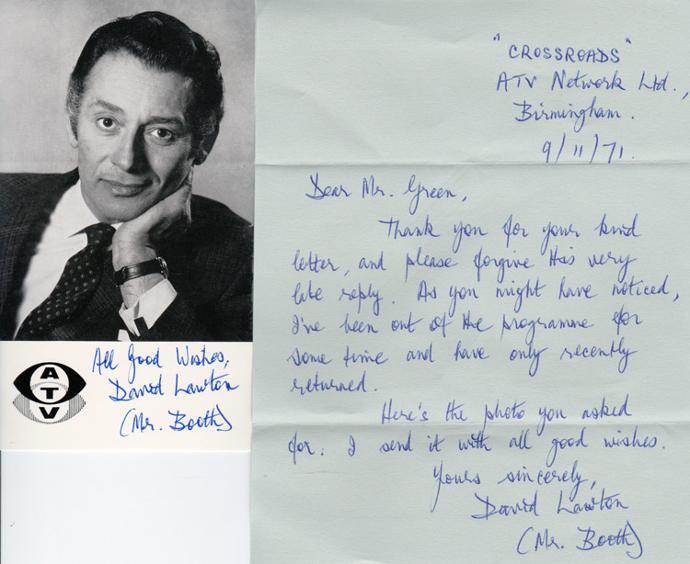 ATV
All Good Wishes,
David Lawton
(Mr. Booth)
"CROSSROADS"
ATV Network Ltd.,
Birmingham.
9/11/71.
Dear Mr. Green,
Thank you for your kind
letter, and please forgive this very
late reply. As you might have noticed,
I've been out of the programme for
some time and have only recently
returned.
Here's the photo you asked
for. I send it with all good wishes.
Yours sincerely,
David Lawton
(Mr. Booth)